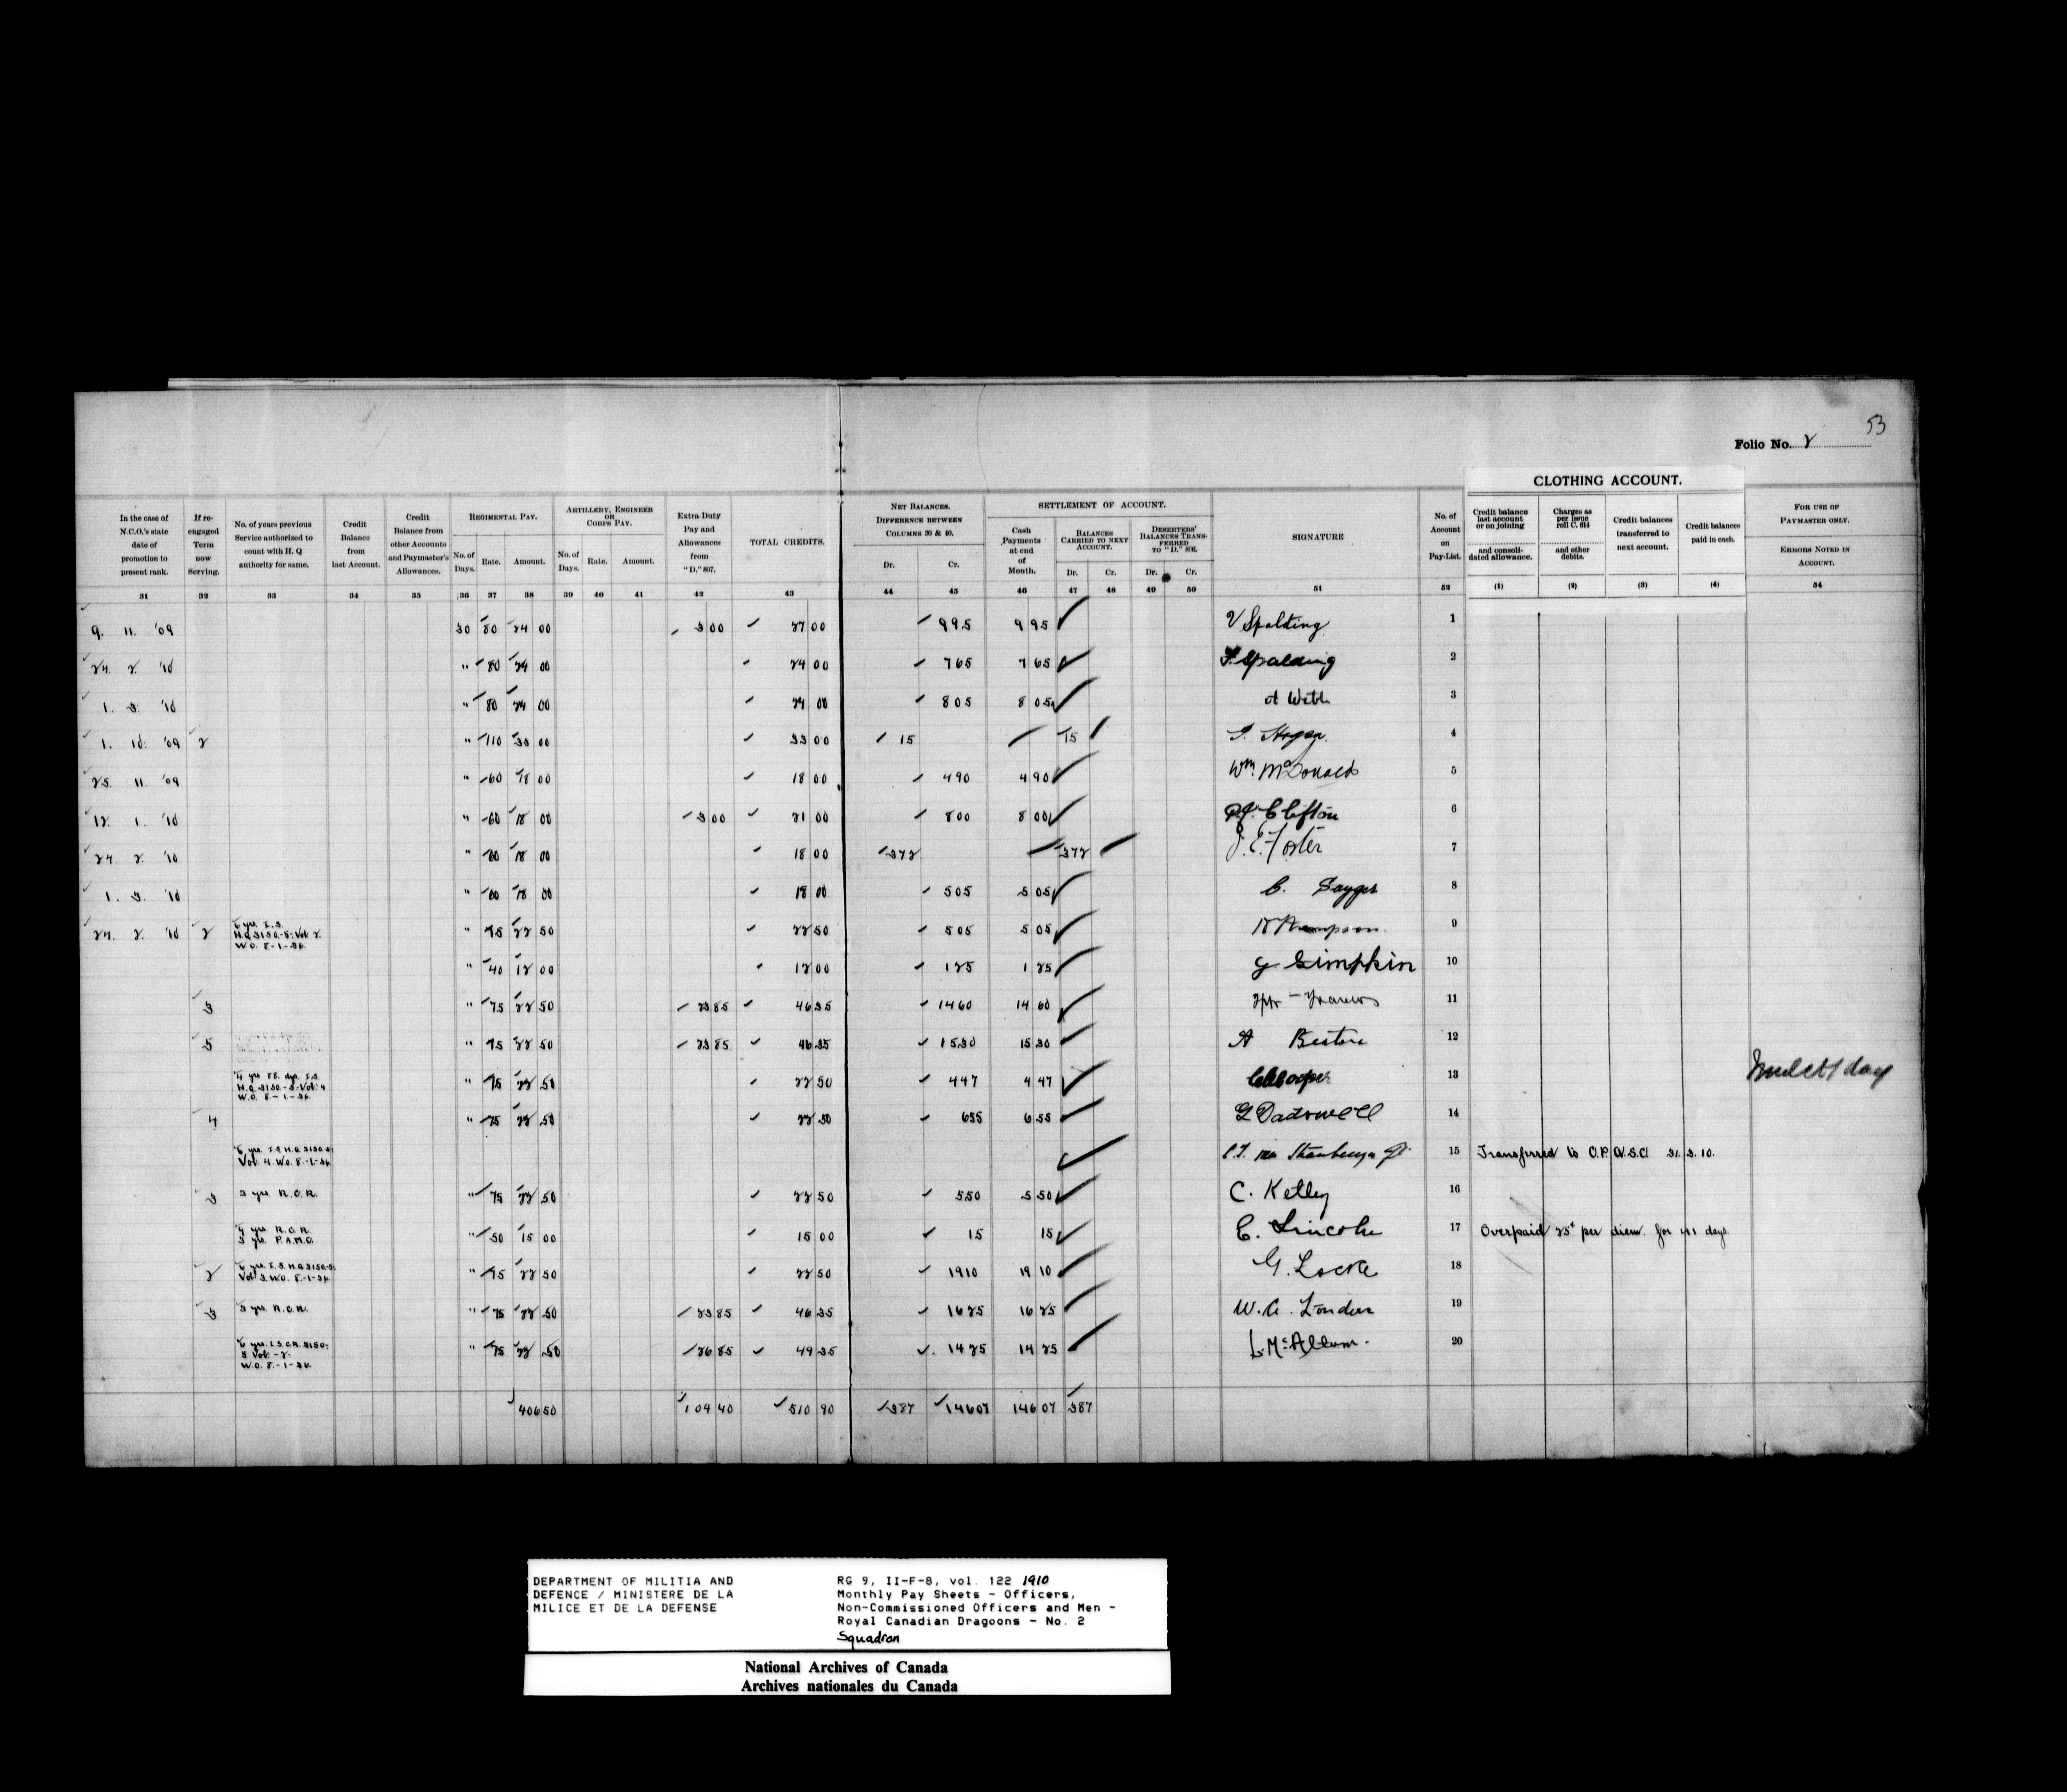 53
Folio No. 2
CLOTHING ACCOUNT.
In the case of N.C.O.'s state date of promotion to present rank.
If re-engaged Term now Serving.
No. of years previous Service authorized to count with H. Q authority for same.
Credit Balance from last Account.
Credit Balance from other Accounts and Paymaster's Allowances.
REGIMENTAL PAY.
No. of Days. Rate. Amount.
ARTILLERY, ENGINEER OR CORPS PAY.
No. of Days. Rate. Amount.
Extra-Duty Pay and Allowances from "D." 807.
TOTAL CREDITS.
NET BALANCES. DIFFERENCE BETWEEN COLUMNS 30 & 40.
Dr. Cr.
SETTLEMENT OF ACCOUNT.
Cash Payments at end of Month.
BALANCES CARRIED TO NEXT ACCOUNT.
Dr. Cr.
DESERTERS' BALANCES TRANSFERRED TO "D." 808.
Dr. Cr.
SIGNATURE
No. of Account on Pay-List.
Credit balance last account or on joining and consolidated allowance.
Charges as per issue roll C. 614 and other debits.
Credit balances transferred to next account.
Credit balances paid in cash.
FOR USE OF PAYMASTER ONLY.
ERRORS NOTED IN ACCOUNT.
31 32 33 34 35 36 37 38 39 40 41 42 43 44 45 46 47 48 49 50 51 52 (1) (2) (3) (4) 54
9. 11. '09 30 80 24 00 3 00 27 00 9 95 9 95 V Spalding 1
24. 2. '10 " 80 24 00 24 00 7 65 7 65 F. Spalding 2
1. 3. '10 " 80 24 00 24 00 8 05 8 05 3
1. 10. '09 2 " 110 33 00 15 15 4
25. 11. '09 " 60 18 00 18 00 4 90 4 90 Wm. McDonald 5
12. 1. '10 " 60 18 00 3 00 21 00 8 00 8 00 Clifton 6
24. 2. '10 " 60 18 00 18 00 3 72 3 72 J. E. Foster 7
1. 3. '10 " 60 18 00 18 00 5 05 5 05 C. 8
24. 2. '10 2 6 yrs. I.S. H.Q. 3150-5-Vol. 2. W.O. 8-1-36. " 75 22 50 22 50 5 05 5 05 Thompson 9
" 40 12 00 12 00 1 25 1 25 G Simpkin 10
3 " 75 22 50 23 85 46 35 14 60 14 60 11
5 " 75 22 50 23 85 46 35 15 30 15 30 A 12
4 yrs 88. dys. I.S. H.Q. 3150-5-Vol. 4 W.O. 8-1-36. " 75 22 50 22 50 4 47 4 47 Cooper 13 day
4 " 75 22 50 22 50 6 55 6 55 G Dadswell 14
6 yrs. I.S. H.Q. 3150-5: Vol. 4. W.O. 8-1-36 15 Transferred to C.P.A.S.C. 31. 3. 10.
3 3 yrs. R.C.R. " 75 22 50 22 50 5 50 5 50 C. Kelley 16
4 yrs. R.C.R. 3 yrs. P.A.M.C. " 50 15 00 15 00 15 15 C. Lincoln 17 Overpaid 25¢ per diem. for 41 days.
2 6 yrs. I.S. H.Q. 3150-5: Vol. 3. W.O. 8-1-36 " 75 22 50 22 50 19 10 19 10 G. Locke 18
3 3 yrs. R.C.R. " 75 22 50 23 85 46 35 16 25 16 25 W. A. 19
6 yrs. I.S. 3150-5 Vol. -2. W.O. 8-1-36. " 75 22 50 26 85 49 35 14 25 14 25 L. McAllum. 20
406 50 104 40 510 90 3 87 146 07 146 07 3 87
DEPARTMENT OF MILITIA AND
DEFENCE / MINISTERE DE LA
MILICE ET DE LA DEFENSE
RG 9, II-F-8, vol. 122 1910
Monthly Pay Sheets - Officers,
Non-Commissioned Officers and Men -
Royal Canadian Dragoons - No. 2
Squadron
National Archives of Canada
Archives nationales du Canada